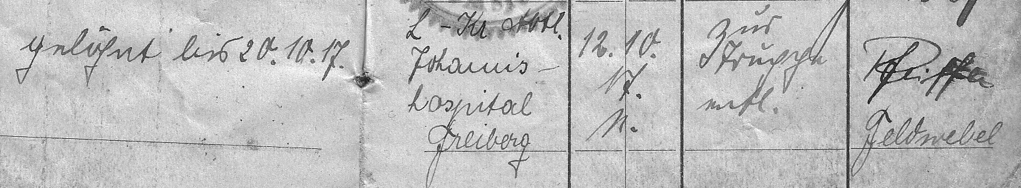 gelöhnt bis 20.10.17.
L-Kr Abtl.
Johannis-
hospital
Freiberg
12.10.
17.
N.
Zur
Truppe
entl.
Pfeiffer
Feldwebel